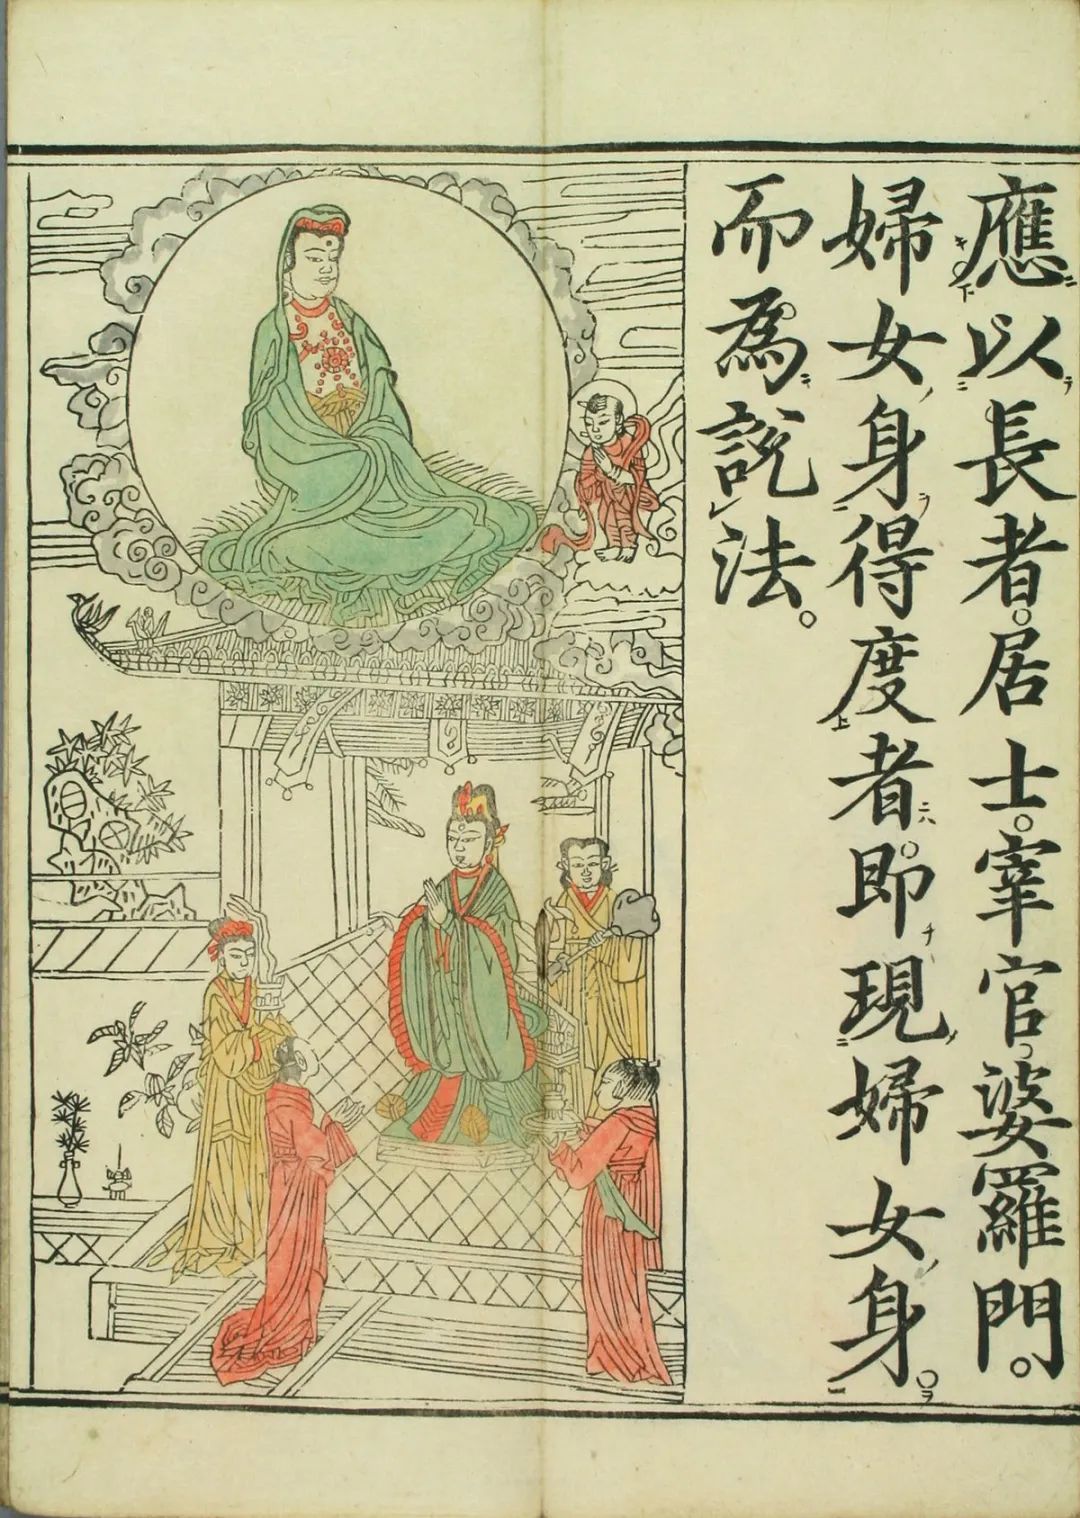 應以長者。居士。宰官。婆羅門。
婦女身得度者。即現婦女身。
而為説法。